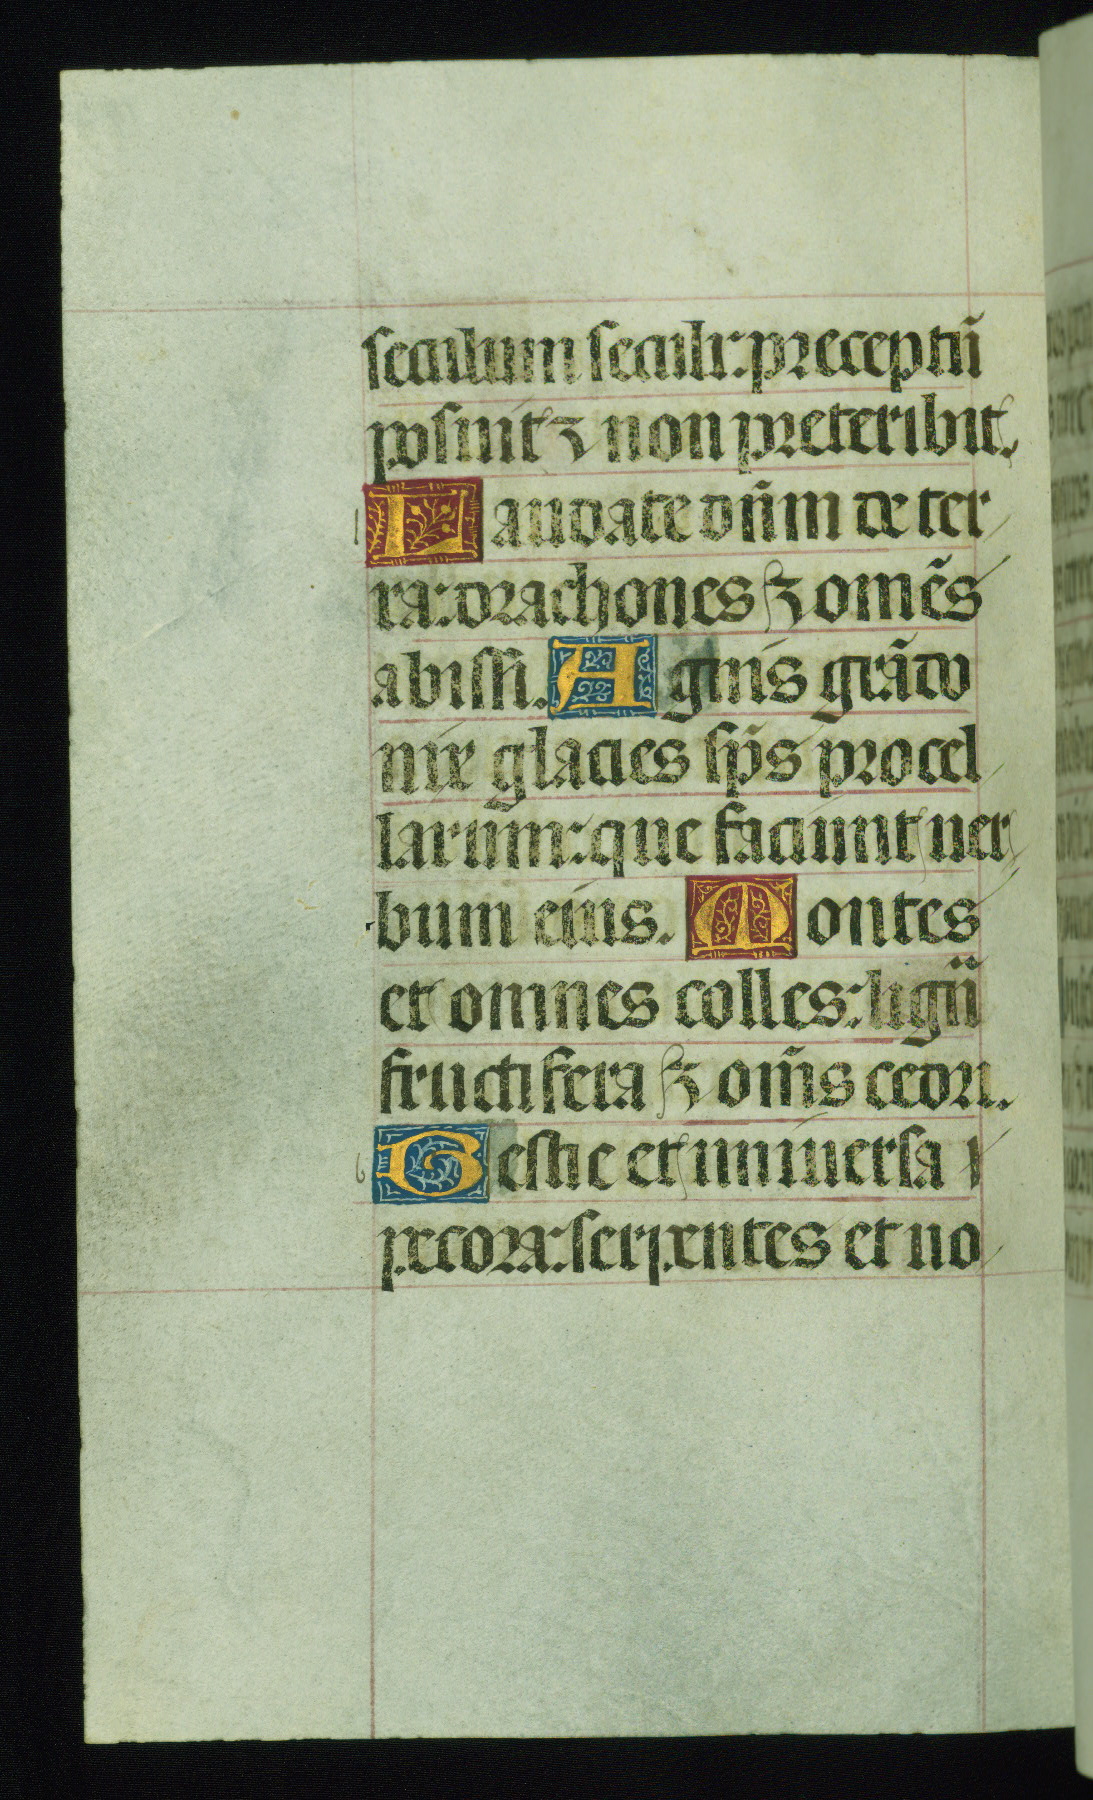 seculum seculi: preceptū
posuit ⁊ non preteribit.
Laudate dn̄m de ter
ra: drachones ⁊ omēs
abissi. Ignis grādo
nix glacies sp̄s procel
larum: que faciunt uer
bum eius. Montes
et omnes colles: lignā
fructifera ⁊ om̄s cedri.
Bestie et uniuersa
pecora: serpentes et uo